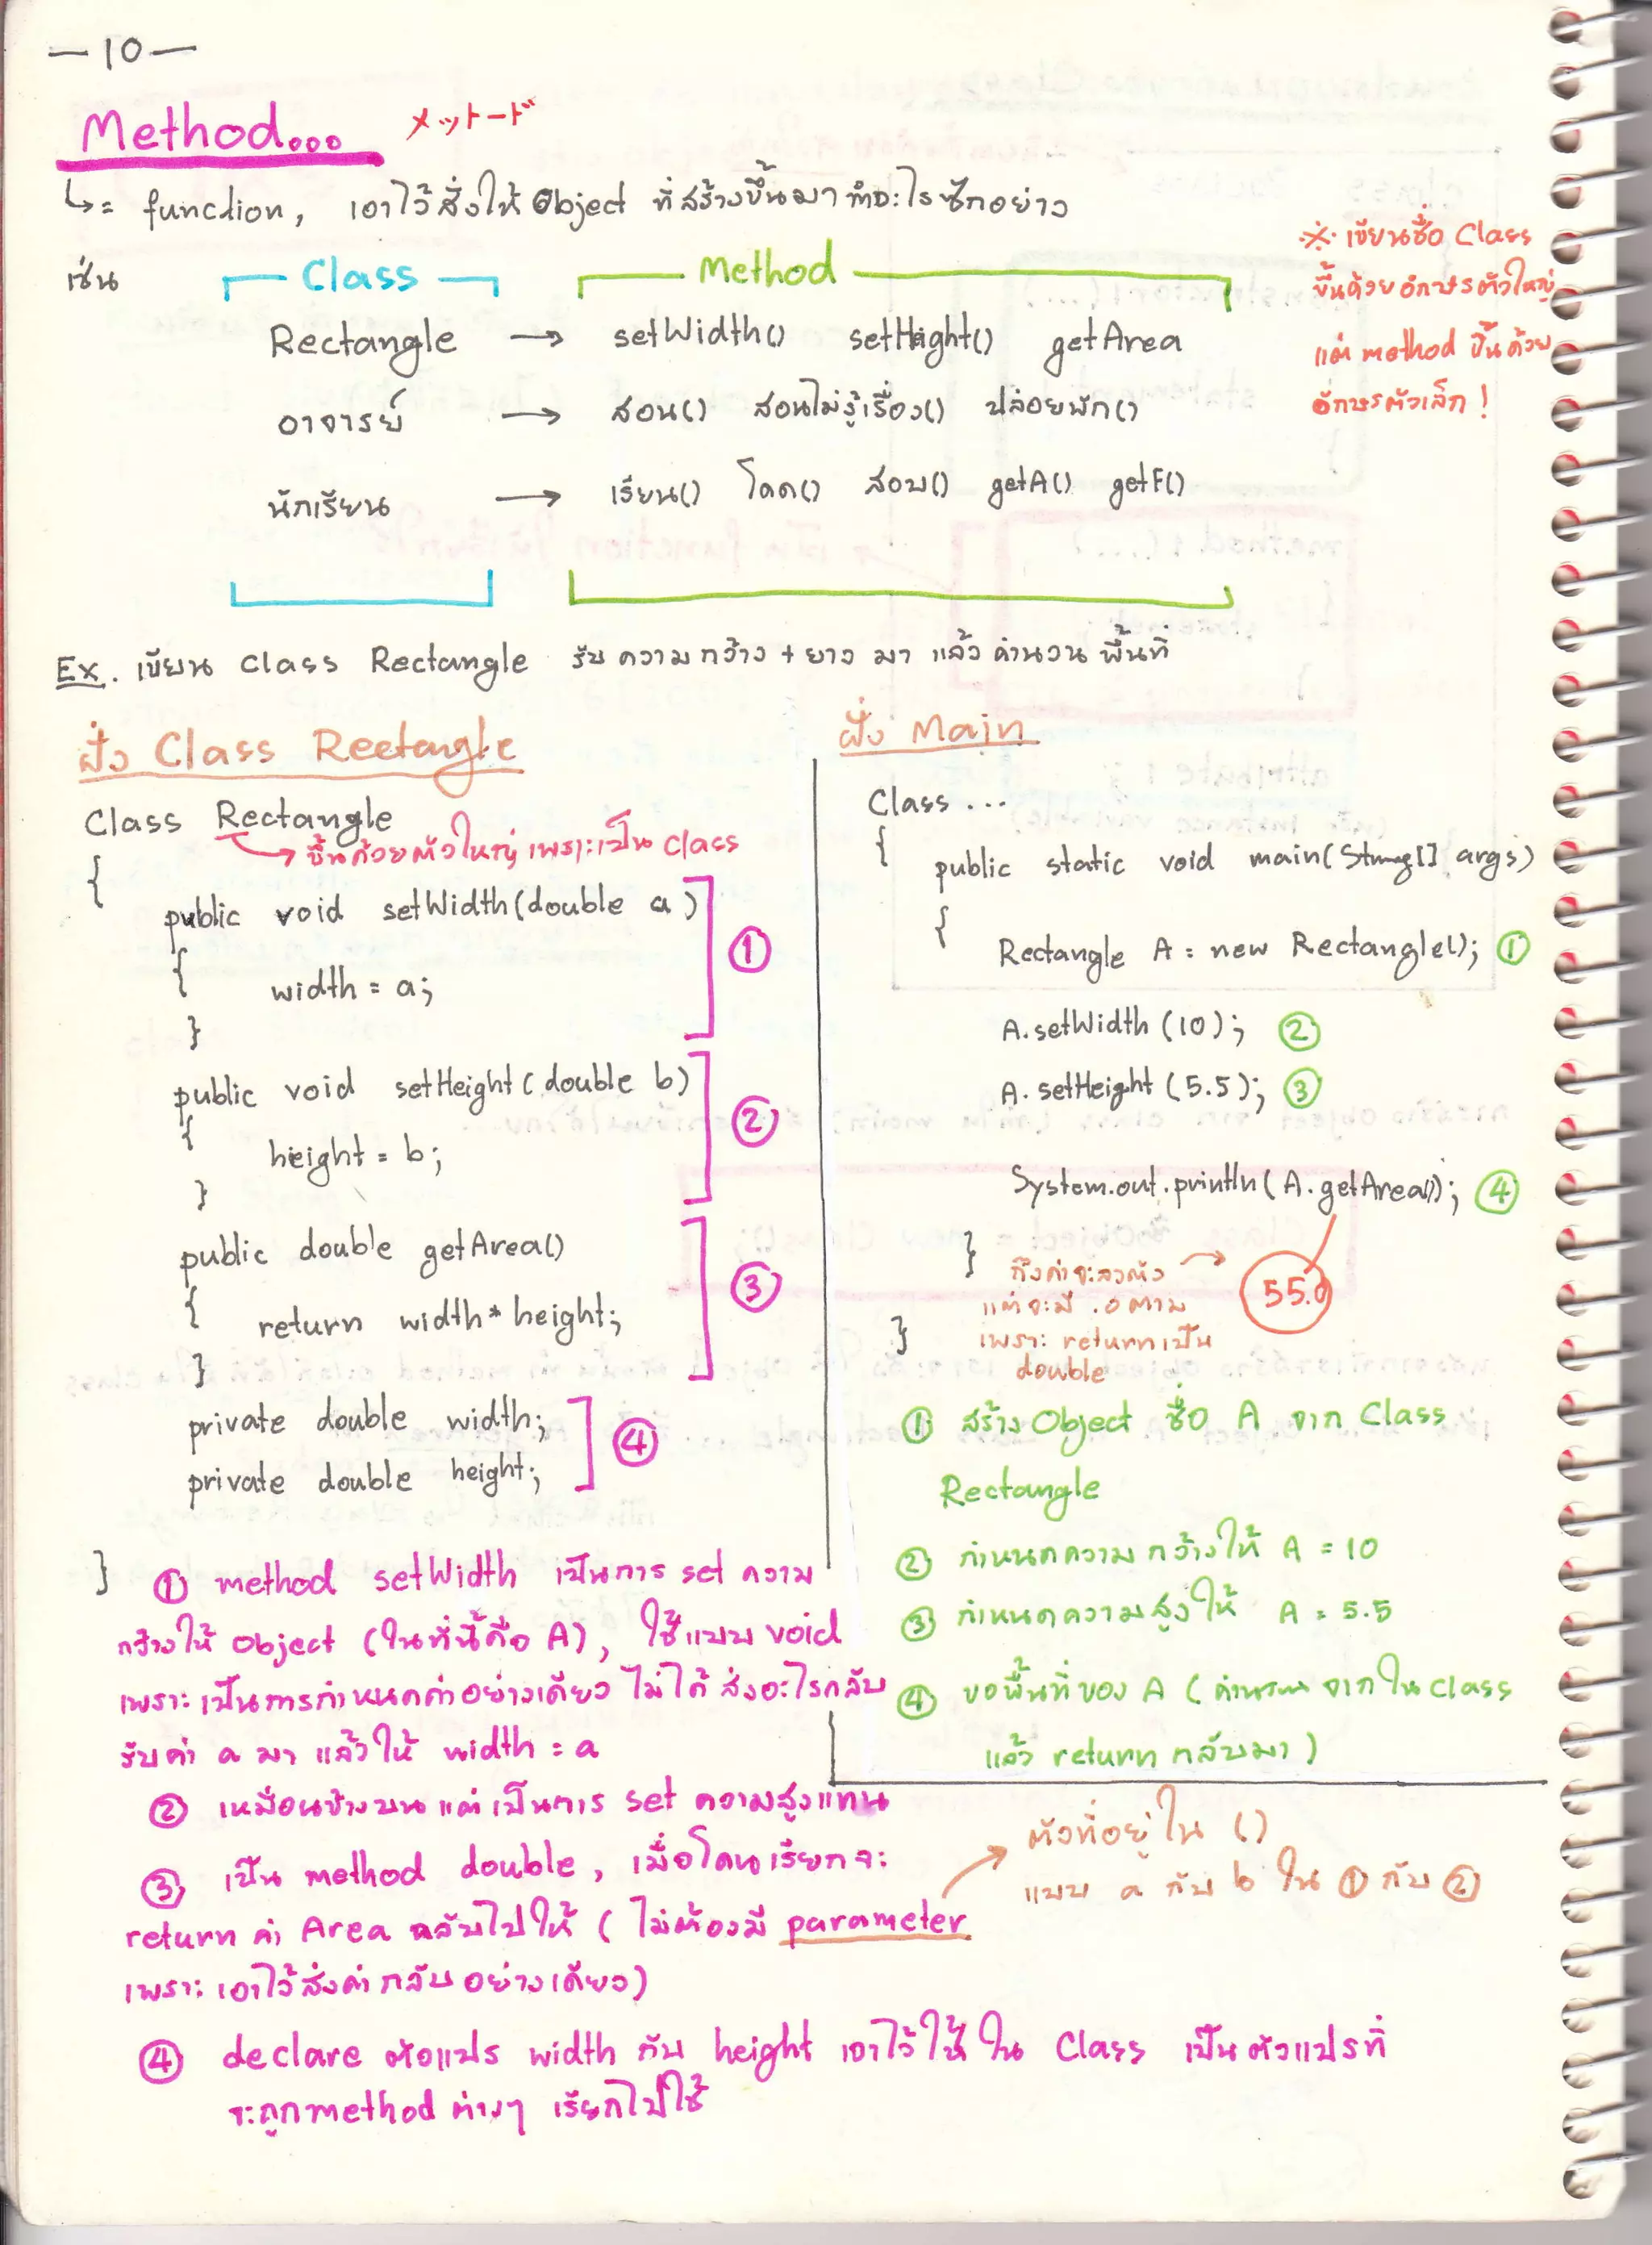 —10—
Method... メットード
↳= function, เอาไว้สั่งให้ Object ที่สร้างขึ้นมาทำอะไรซักอย่าง
※ เขียนชื่อ Class
ขึ้นด้วยอักษรตัวใหญ่
แต่ method ขึ้นด้วย
อักษรตัวเล็ก!
เช่น Class Method
Rectangle → setWidth() setHeight() getArea
อาจารย์ → สอน() สอนไม่รู้เรื่อง() ปล่อยพัก()
นักเรียน → เรียน() โดด() สอบ() getA() getF()
Ex. เขียน Class Rectangle รับความกว้าง + ยาว มา แล้วคำนวนพื้นที่
ฝั่ง Class Rectangle
Class Rectangle
→ ขึ้นด้วยตัวใหญ่ เพราะเป็น Class
{
public void setWidth(double a)
{
width = a;
}
①
public void setHeight(double b)
{
height = b;
}
②
public double getArea()
{
return width*height;
}
③
private double width;
private double height;
④
}
① method setWidth เป็นการ set ความ
กว้างให้ Object (ในที่นี้คือ A), ใช้แบบ void
เพราะเป็นการกำหนดค่าอย่างเดียว ไม่ได้ส่งอะไรกลับ
รับค่า a มา แล้วให้ width = a
② เหมือนข้างบน แต่เป็นการ set ความสูงแทน
③ เป็น method double, เมื่อโดนเรียกจะ
return ค่า Area กลับไปให้ (ไม่ต้องมี parameter
เพราะเอาไว้ส่งค่ากลับอย่างเดียว)
④ declare ตัวแปร width กับ height เอาไว้ใช้ใน Class เป็นตัวแปรที่
จะถูก method ต่างๆ เรียกไปใช้
ฝั่ง Main
Class...
{
public static void main(String[] args)
{
Rectangle A = new Rectangle(); ①
A.setWidth(10); ②
A.setHeight(5.5); ③
System.out.println(A.getArea()); ④
}
ถึงค่าจะลงตัว → 55.0
แต่จะมี .0 ตาม
เพราะ return เป็น
double
}
① สร้าง Object ชื่อ A จาก Class
Rectangle
② กำหนดความกว้างให้ A = 10
③ กำหนดความสูงให้ A = 5.5
④ ขอพื้นที่ของ A (คำนวนจากใน Class
แล้ว return กลับมา)
ตัวที่อยู่ใน ()
แบบ a กับ b ใน ① กับ ②